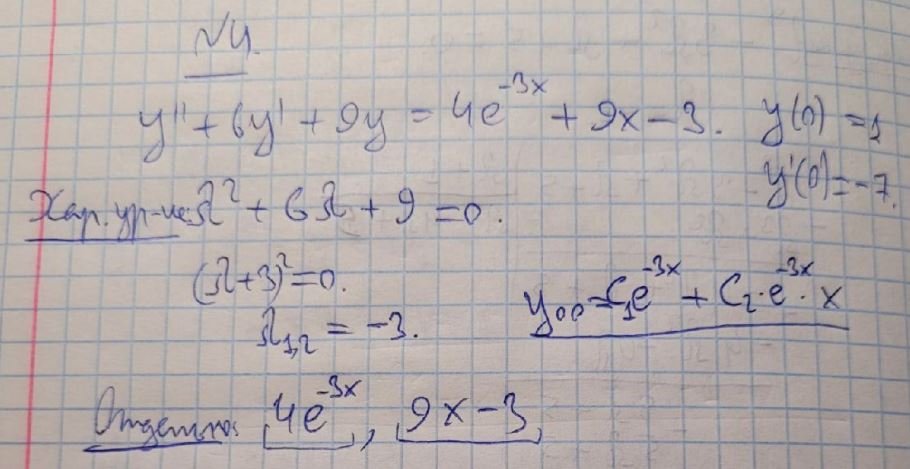 №4.
y'' + 6y' + 9y = 4e^{-3x} + 9x - 3. y(0) = 1
y'(0) = -7.
Хар. ур-ие: λ² + 6λ + 9 = 0.
(λ+3)² = 0.
λ₁,₂ = -3.
y₀₀ = C₁e^{-3x} + C₂·e^{-3x}·x
Отдельно: 4e^{-3x}, 9x-3,